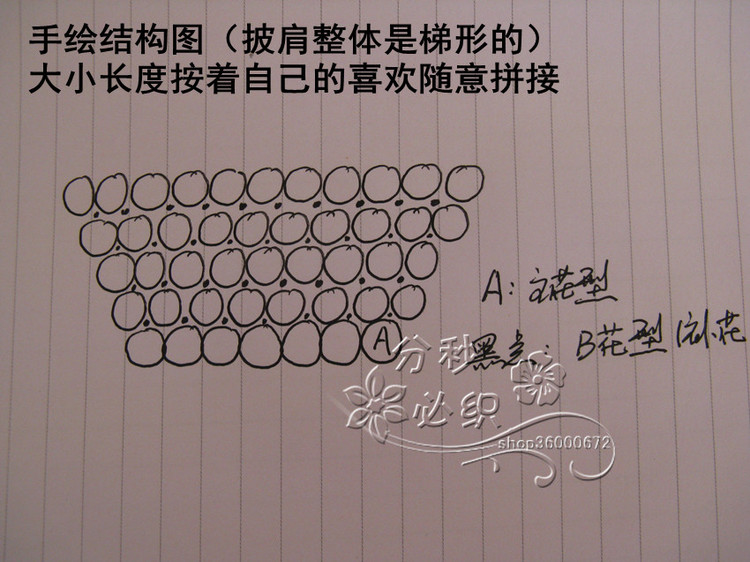 手绘结构图（披肩整体是梯形的）
大小长度按着自己的喜欢随意拼接
A: 主花型
A
黑点: B花型(小花
分秒
必织
shop36000672